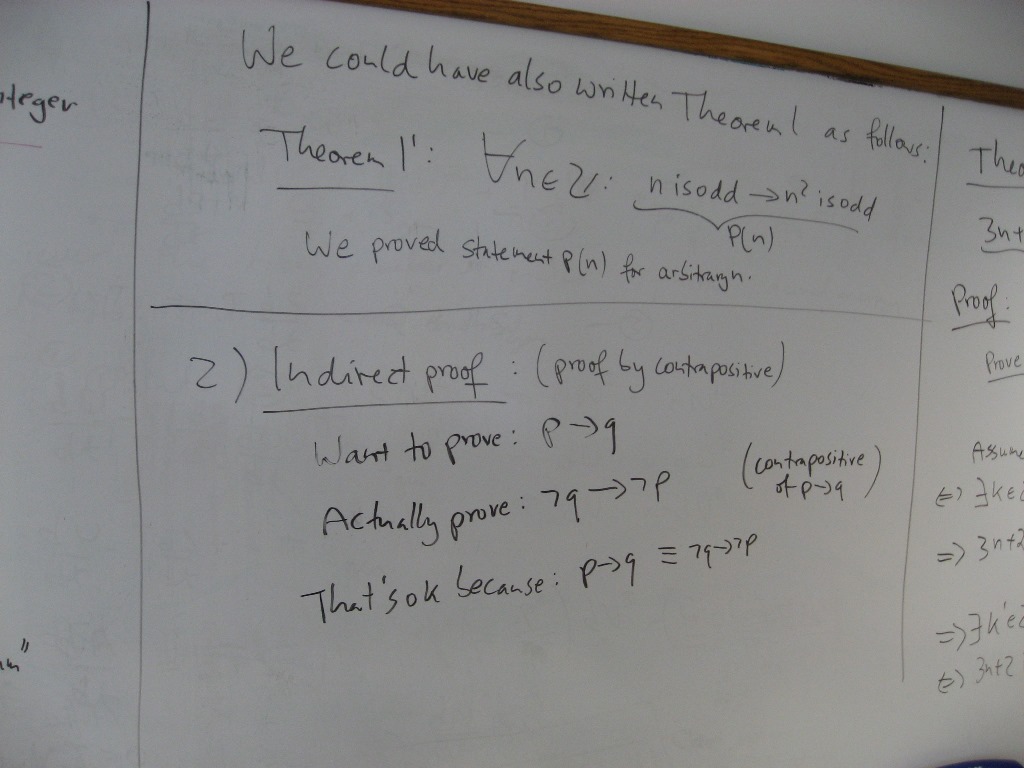 nteger
We could have also written Theorem 1 as follows:
Theorem 1': ∀n∈ℤ: n is odd → n² is odd
P(n)
We proved statement P(n) for arbitrary n.
2) Indirect proof: (proof by contrapositive)
Want to prove: p→q
Actually prove: ¬q→¬p (contrapositive
of p→q)
That's ok because: p→q ≡ ¬q→¬p
Theo
3n+
Proof:
Prove
Assume
⇔ ∃k∈
⇒ 3n+2
⇒ ∃k'∈
⇔ 3n+2